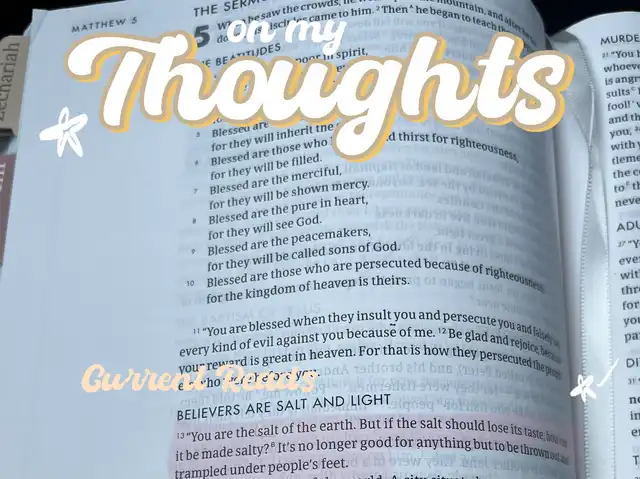 MATTHEW 5
THE SERMO
mountain, and after he
5 W he saw the crowds, he
disciples came to him. ² Then he began to teach the
THE BEATITUDES
on my
Thoughts
poor in spirit,
Zechariah
5 Blessed are
for they will inherit the
6 Blessed are those who d thirst for righteousness,
for they will be filled.
7 Blessed are the merciful,
for they will be shown mercy.
8 Blessed are the pure in heart,
for they will see God.
9 Blessed are the peacemakers,
for they will be called sons of God.
10 Blessed are those who are persecuted because of righteousness,
for the kingdom of heaven is theirs.
11 “You are blessed when they insult you and persecute you and falsely
every kind of evil against you because of me. 12 Be glad and rejoice, because
your reward is great in heaven. For that is how they persecuted the prophets
who before you.
Current Reads
BELIEVERS ARE SALT AND LIGHT
13 “You are the salt of the earth. But if the salt should lose its taste, how
it be made salty? It’s no longer good for anything but to be thrown out and
trampled under people’s feet.
MURDE
21 “You h
whoeve
is angr
sults
fool!’
and th
you,
with y
tleme
the c
to th
neve
ADU
27 “Y
ever
wit
thr